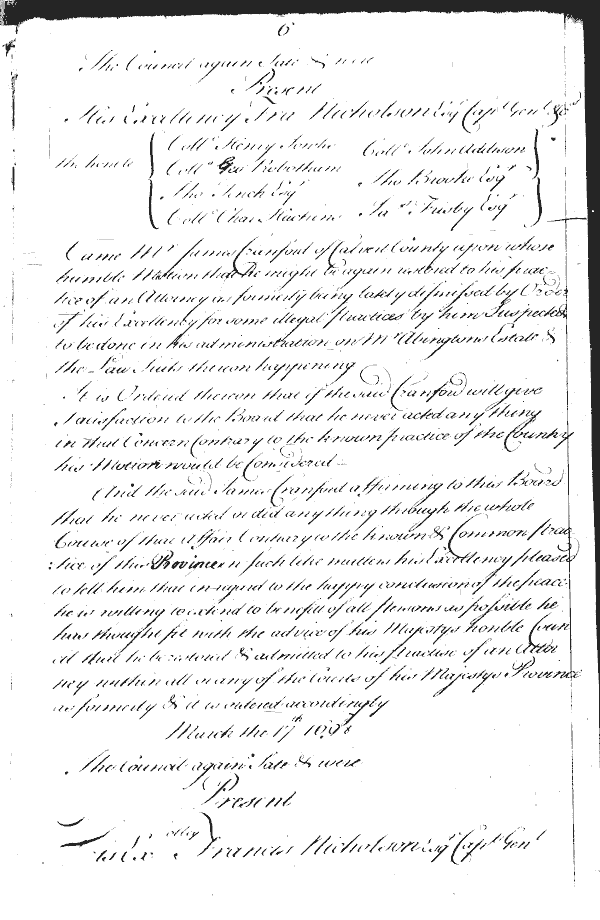 6
The Council again Sate & were
Present
His Excellency Fra: Nicholson Esqr Capt Genl &c
the honble
Collo Henry Jowles Collo John Addison
Collo Geo Robotham Tho Brooke Esqr
Tho Tench Esqr
Collo Chas Hutchins Ja Frisby Esqr
Came Mr James Cranford of Calvert County upon whose
humble Motion that he might be again restored to his prac-
tice of an Attorney as formerly being lately dismissed by Order
of his Excellency for some illegal practices by him Suspected
to be done in his administration on Mr Abingtons Estate &
the Law Suits thereon happening
It is Ordered thereon that if the said Cranford will give
Satisfaction to the Board that he never acted any thing
in that Concern Contrary to the known practice of the Country
his Motion would be Considered
And the said James Cranford affirming to this Board
that he never acted or did any thing through the whole
Course of that Affair Contrary to the known & Common prac
:tice of this Province in such like matters his Excellency pleased
to tell him that in regard to the happy conclusion of the peace
he is willing to extend to benefit of all persons as possible he
has thought fit with the advice of his Majestys honble Coun
cil that he be restored & admitted to his practise of an Attor
ney within all or any of the Courts of his Majestys Province
as formerly & it is ordered accordingly
March the 17th 1697/8
The Council again Sate & were
Present
His Excellcy Francis Nicholson Esqr Capt Genl